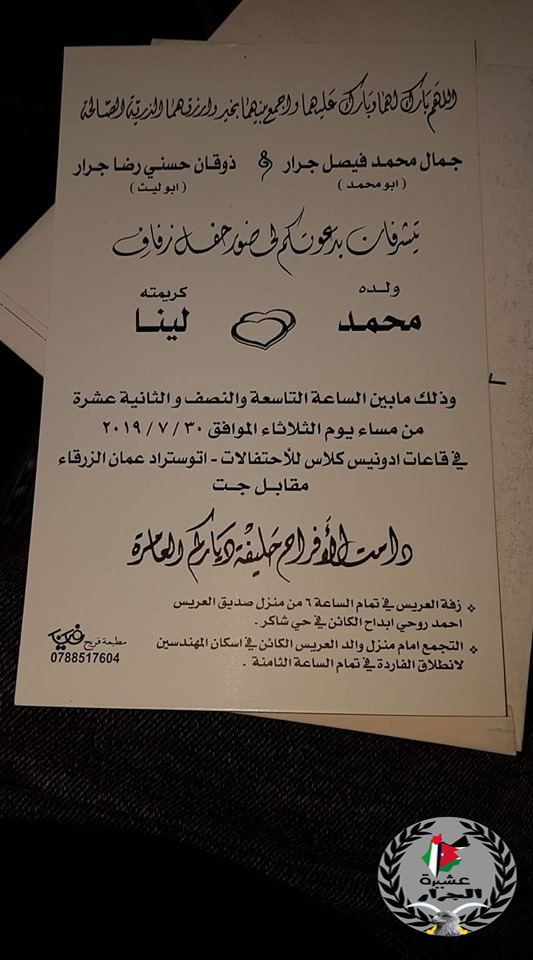 اللهم بارك لهما وبارك عليهما واجمع بينهما بخير وارزقهما الذرية الصالحة
جمال محمد فيصل جرار و ذوقان حسني رضا جرار
( ابو محمد ) ( ابو ليث )
يتشرفان بدعوتكم لحضور حفل زفاف
ولده كريمته
محمد لينا
وذلك مابين الساعة التاسعة والنصف و الثانية عشرة
من مساء يوم الثلاثاء الموافق ٣٠ / ٧ / ٢٠١٩
في قاعات ادونيس كلاس للأحتفالات - اتوستراد عمان الزرقاء
مقابل جت
دامت الأفراح حليفة دياركم العامرة
زفة العريس في تمام الساعة ٦ من منزل صديق العريس
احمد روحي ابداح الكائن في حي شاكر .
التجمع امام منزل والد العريس الكائن في اسكان المهندسين
لانطلاق الفاردة في تمام الساعة الثامنة .
مطبعة فريج
0788517604
عشيرة
الجرار